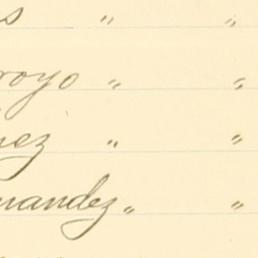 s " "
royo " "
nez " "
nandez " "